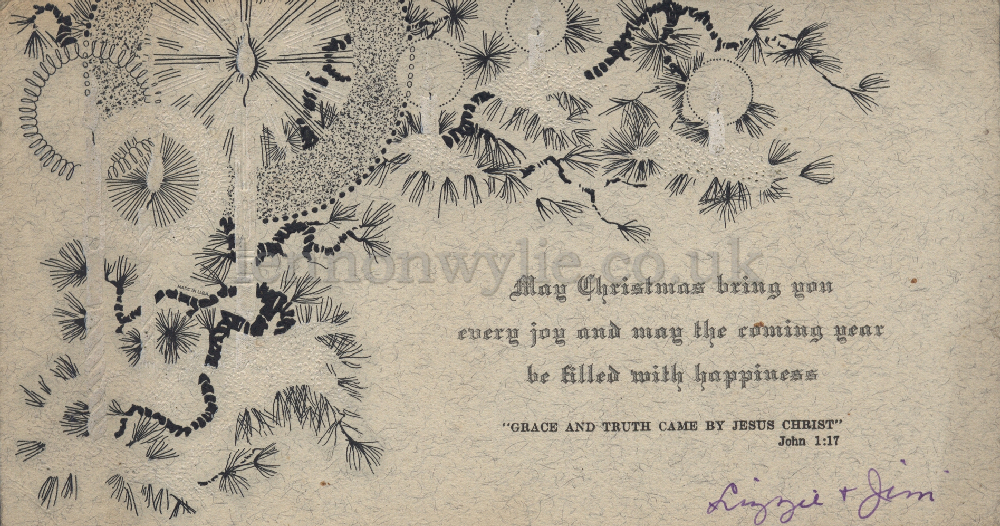 lennonwylie.co.uk
MADE IN U.S.A.
May Christmas bring you
every joy and may the coming year
be filled with happiness
"GRACE AND TRUTH CAME BY JESUS CHRIST"
John 1:17
Lizzie + Jim